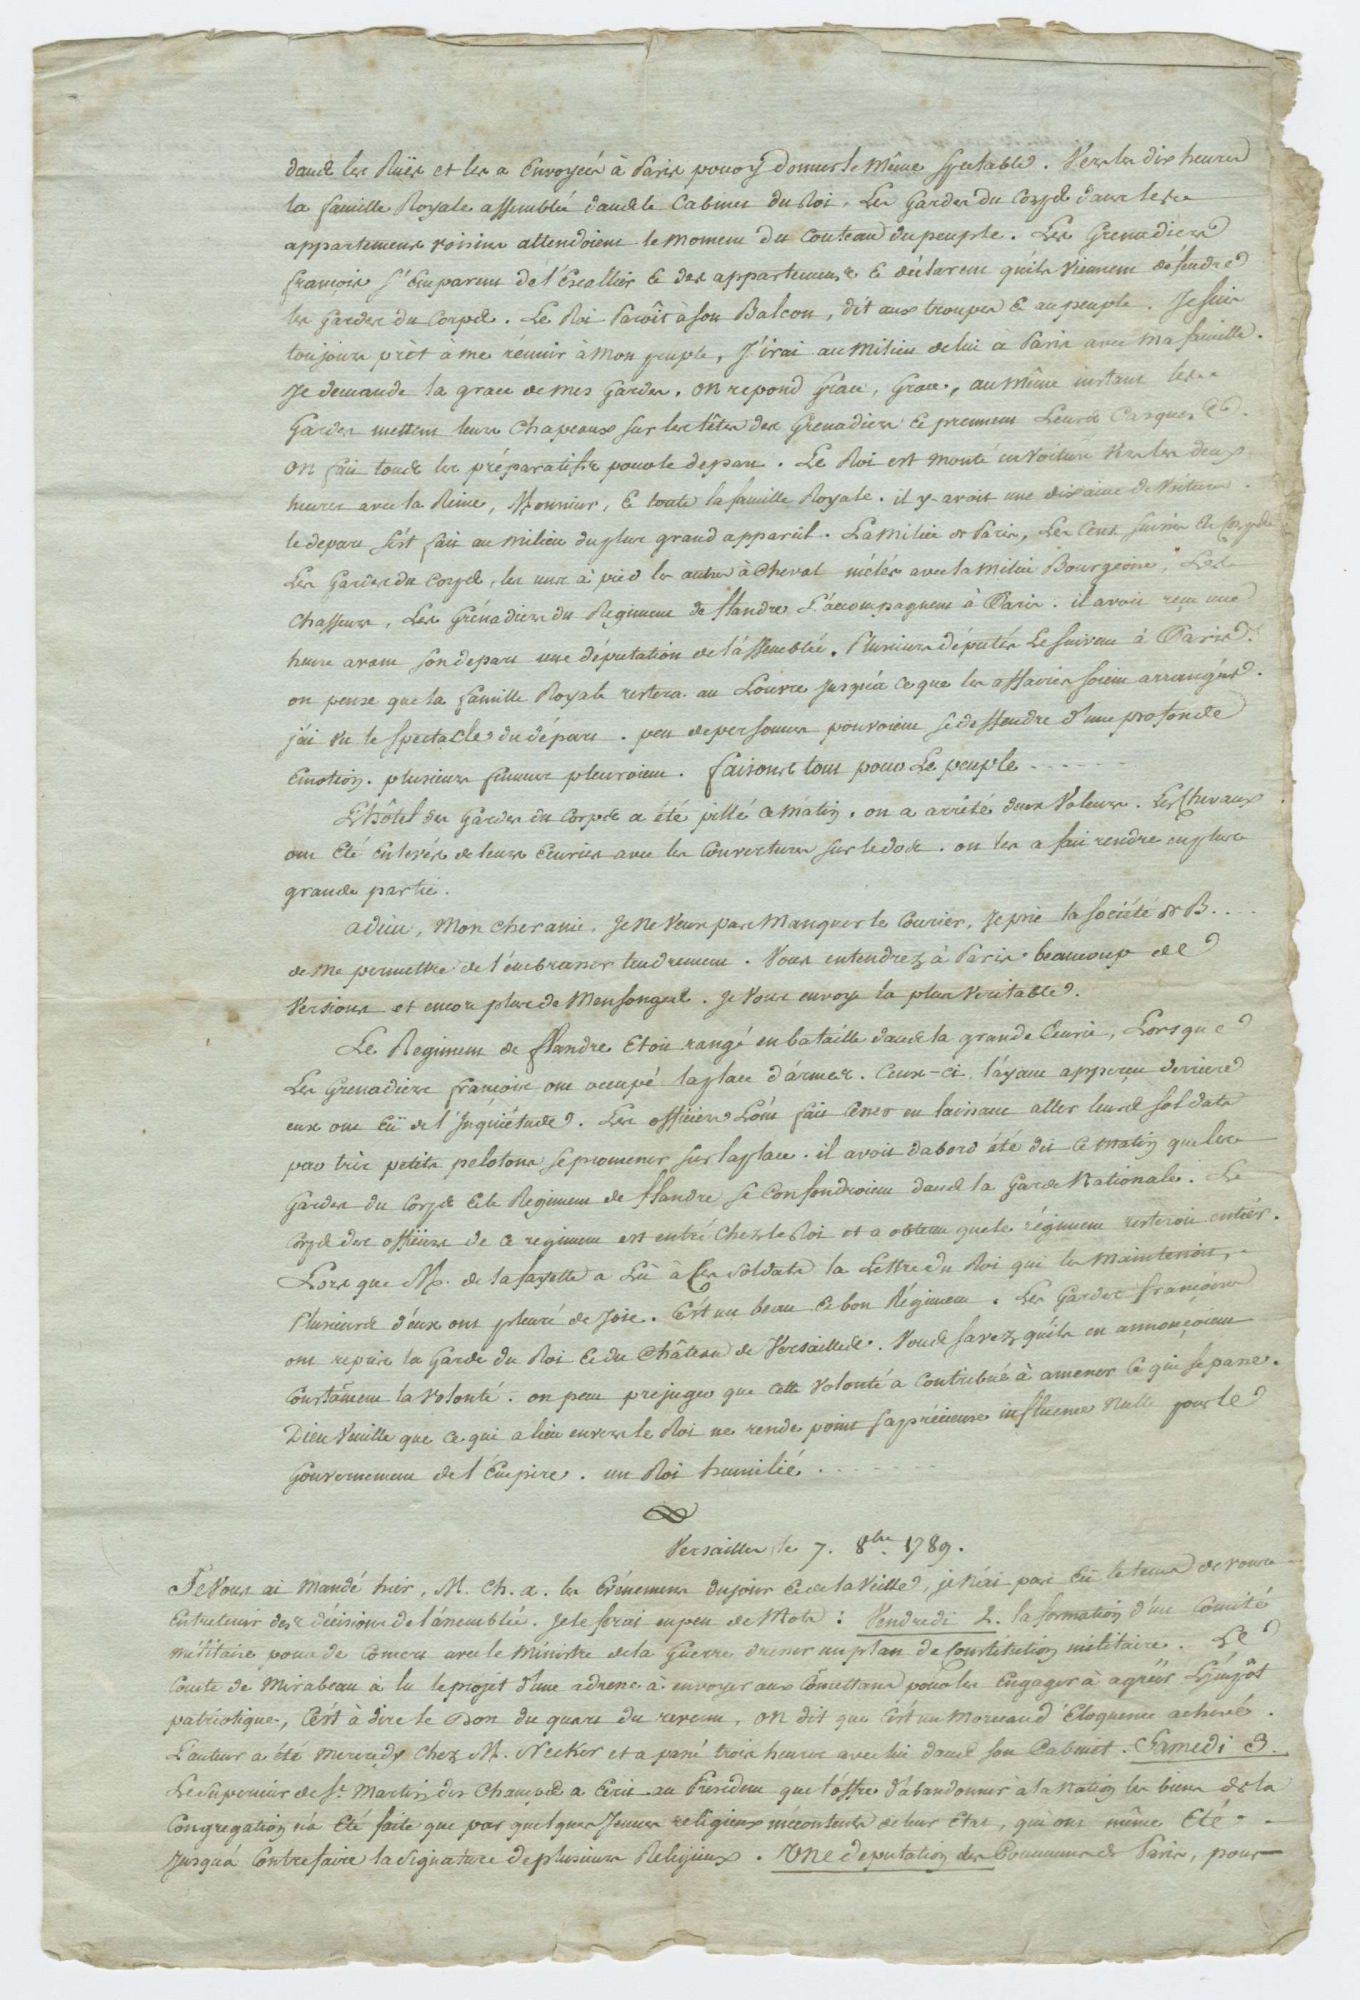 dans les Rües et les a Envoyées à Paris pour y donner le même spectable. Vers les dix heures
la famille Royale assemblée dans le Cabinet du Roi, Les Gardes du Corps dans les
appartemens voisins attendoient le moment du Couteau du peuple. Les Grenadiers
françois s'emparent de l'Escallier & des appartemens & déclarent qu'ils viennent défendre
les Gardes du Corps. Le Roi Paroît à son Balcon, dit aux troupes & au peuple. Je suis
toujours prèt à me réunir à mon peuple, J'irai au milieu de lui à Paris avec ma famille.
Je demande la grace de mes Gardes. On repond Grace, Grace, au même instant les
Gardes mettent leurs Chapeaux sur les têtes des Grenadiers & prennent Leurs Casques &c.
On fait tous les préparatifs pour le depart. Le Roi est monté en voiture vers les deux
heures avec la Reine, Monsieur, & toute la famille Royale. il y avait une dixaine de voitures.
le depart s'est fait au milieu du plus grand appareil. La milice de Paris, Les Cent Suisses En Corps
Les Gardes du Corps, les uns à pied les autres à Cheval mêlés avec la milice Bourgeoise, Les
Chasseurs, Les Grénadiers du Regiment de flandre L'accompagnent à Paris. il avoit reçu une
heure avant son depart une députation de l'assemblée. Plusieurs députés Le suivent à Paris.
on pense que la famille Royale restera au Louvre jusqu'à ce que les affaires soient arrangées.
j'ai vu le spectacle du départ. peu de personnes pouvoient se deffendre d'une profonde
Emotion. plusieurs femmes pleuroient. faisons tout pour Le peuple ......
L'hôtel des Gardes du Corps a été pillé ce matin. on a arrêté deux Voleurs. Les Chevaux
ont Eté Enlevés de leurs Ecuries avec les Couvertures sur le dos. on les a fait rendre en plus
grande partie.
adieu, Mon cher ami, Je ne veux pas manquer le Courier, Je prie la société de B....
de me permettre de l'embrasser tendrement. Vous entendrez à Paris beaucoup de
versions et encor plus de Mensonges. Je vous envoye la plus Veritable.
Le Regiment de flandre Etoit rangé en bataille dans la grande Ecurie, Lorsque
Les Grenadiers françois ont occupé la place d'armes. Ceux-ci l'ayant apperçu derriere
eux ont Eü de l'Inquiétude. Les officiers L'ont fait Cesser en laissant aller leurs soldats
par très petits pelotons se promener sur la place. il avoit d'abord été dit ce matin que les
Gardes du Corps & le Regiment de flandre se Confondroient dans la Garde Nationale. Le
Corps des officiers de ce regiment est entré chez le Roi et a obtenu que le régiment resteroit entier.
Lors que M. de la fayette a Lû à Ces soldats la Lettre du Roi qui les maintenoit,
Plusieurs d'eux ont pleuré de Joie. C'est un beau & bon Régiment. Les Gardes françoises
ont repris la Garde du Roi & du Château de Versailles. Vous savez qu'ils en annonçoient
Constâment la volonté. on peut prejuger que cette volonté a contribué à amener Ce qui se passe.
Dieu Veuille que ce qui a lieu envers le Roi ne rende point sa précieuse influence Nulle pour le
Gouvernement de l'Empire. un Roi humilié ......
Versailles le 7. 8bre 1789.
Je Vous ai mandé hier, M. Ch. a. les Evénemens du jour & de la veille, je n'ai pas Eü le tems de vous
Entretenir des décisions de l'assemblée. Je le ferai en peu de Mots: Vendredi 2. la formation d'un Comité
militaire pour de Concert avec le Ministre de la Guerre dresser un plan de Constitution militaire. Le
Comte de Mirabeau à lu le projet d'une adresse à envoyer aux Cômettans pour les Engager à agréer L'impôt
patriotique, C'est à dire le Don du quart du revenu, On dit que C'est un Morceau d'Eloquence achevé.
L'auteur a été mercredy chez M. Necker et a passé trois heures avec lui dans son Cabinet. Samedi 3.
Le Superieur de St Martin des Champs a Ecrit au Président que l'offre d'abandonner à la Nation les biens de la
Congregation n'a Eté faite que par quelques Jeunes religieux mécontents de leur Etat, qui ont même Eté
Jusqu'à Contrefaire la signature de plusieurs Religieux. Une deputation des Communes de Paris, pour